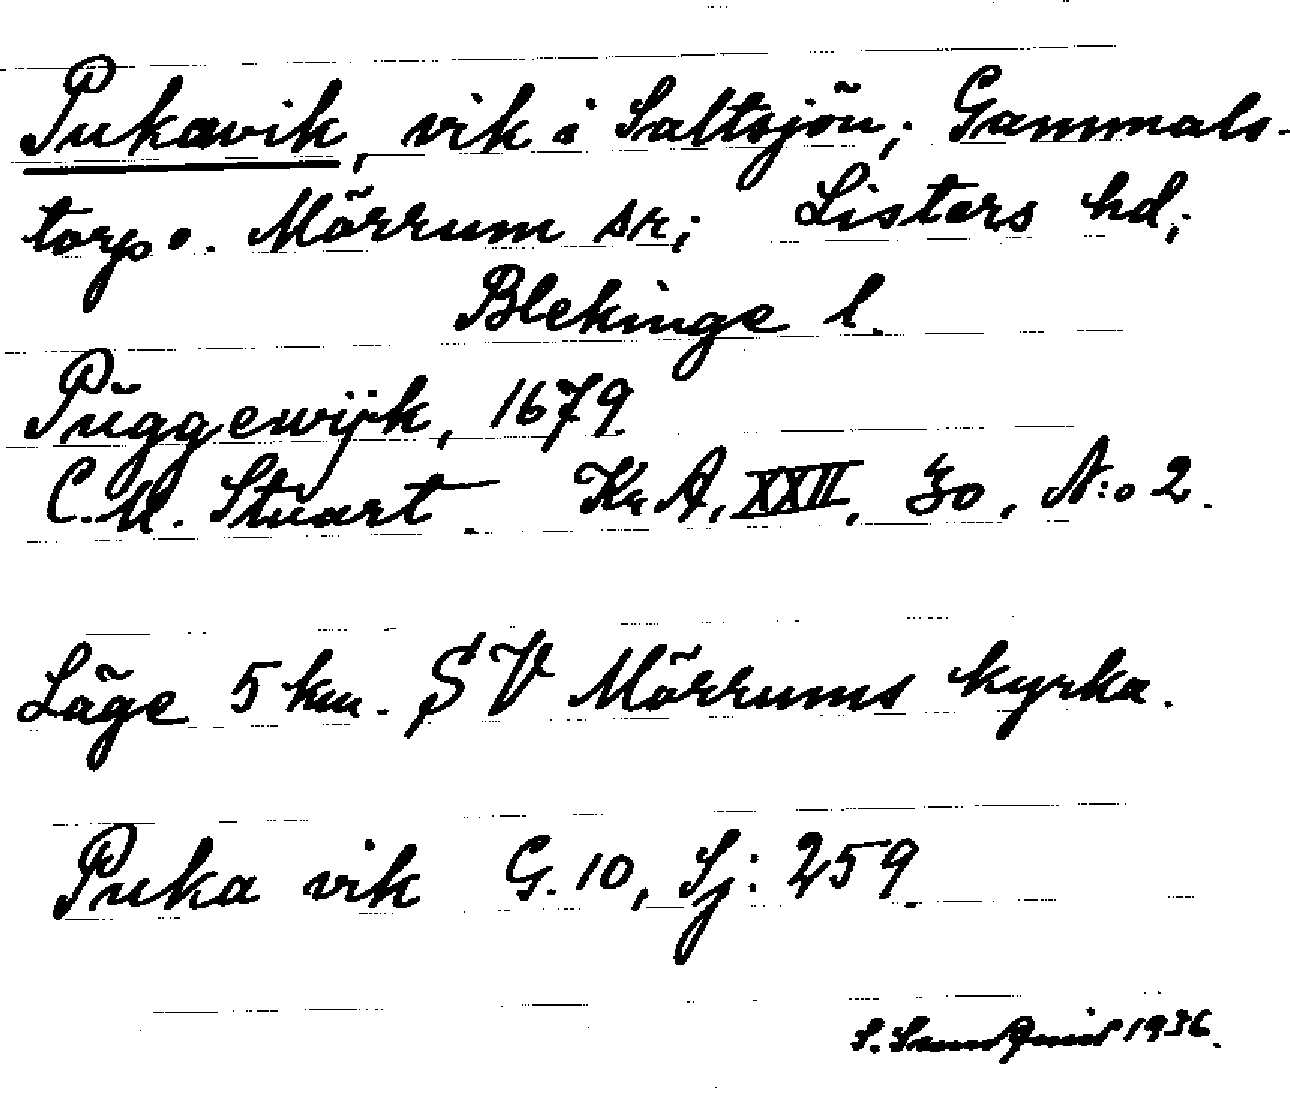 Pukavik, vik i Saltsjön; Gammals-
torp o. Mörrum sr; Listers hd;
Blekinge l.
Püggewijk, 1679.
C.M. Stuart. Kr A, XXII, 30, N:o 2.
Läge 5 km. SV Mörrums kyrka.
Puka vik G. 10, Sj: 259.
S. 1936.